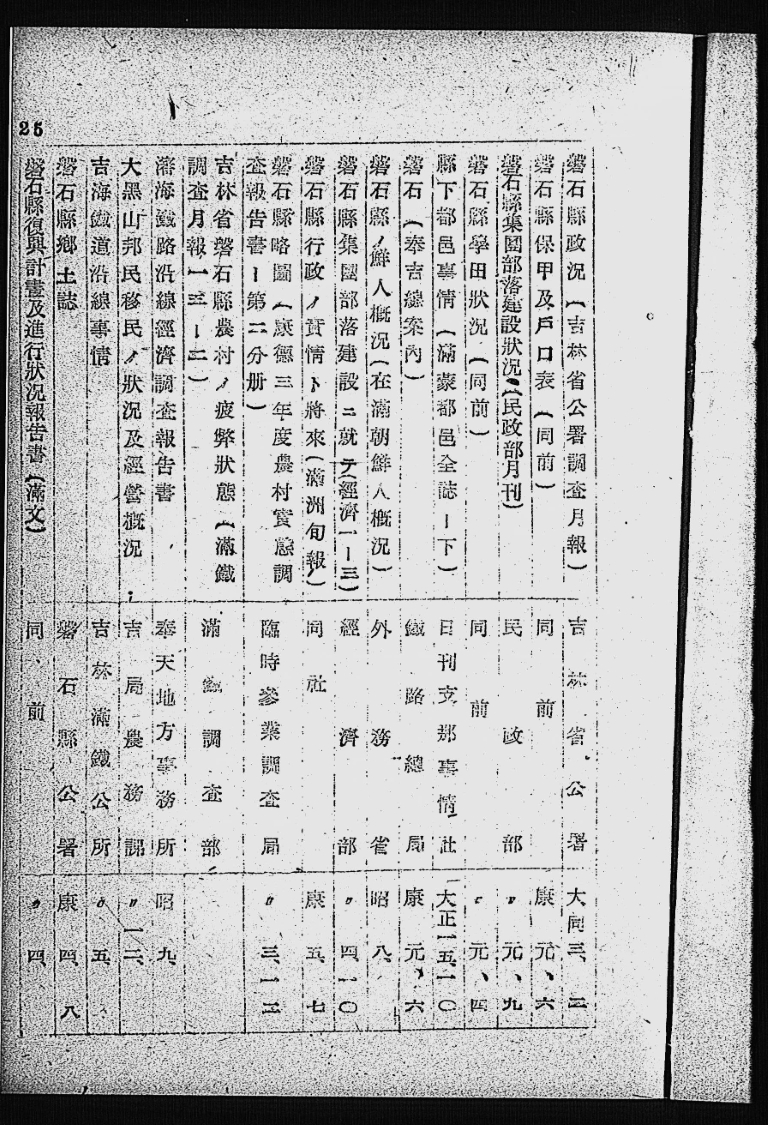 25
磐石縣政況(吉林省公署調查月報) 吉林省公署 大同三、三
磐石縣保甲及戶口表(同前) 同前 康元、六
磐石縣集團部落建設狀況(民政部月刊) 民政部 〃元、九
磐石縣學田狀況(同前) 同前 〃元、四
縣下都邑事情(滿蒙都邑全誌ー下) 日刊支那事情社 大正一五、一〇
磐石(奉吉線案內) 鐵路總局 康元、六
磐石縣ノ鮮人概況(在滿朝鮮人概況) 外務省 昭八、
磐石縣集團部落建設ニ就テ(經濟一ー三) 經濟部 〃四、一〇
磐石縣行政ノ實情ト將來(滿洲旬報) 同社 康五、七
磐石縣略圖(康德三年度農村實態調
查報告書ー第二分册) 臨時產業調查局 〃三、一二
吉林省磐石縣農村ノ疲弊狀態(滿鐵
調查月報一三ー二) 滿鐵調查部
瀋海鐵路沿線經濟調查報告書 奉天地方事務所 昭九、
大黑山邦民移民ノ狀況及經營概況 吉局農務課 〃一二、
吉海鐵道沿線事情 吉林滿鐵公所 〃五、
磐石縣鄉土誌 磐石縣公署 康四、八
磐石縣復興計畫及進行狀況報告書(滿文) 同前 〃四、